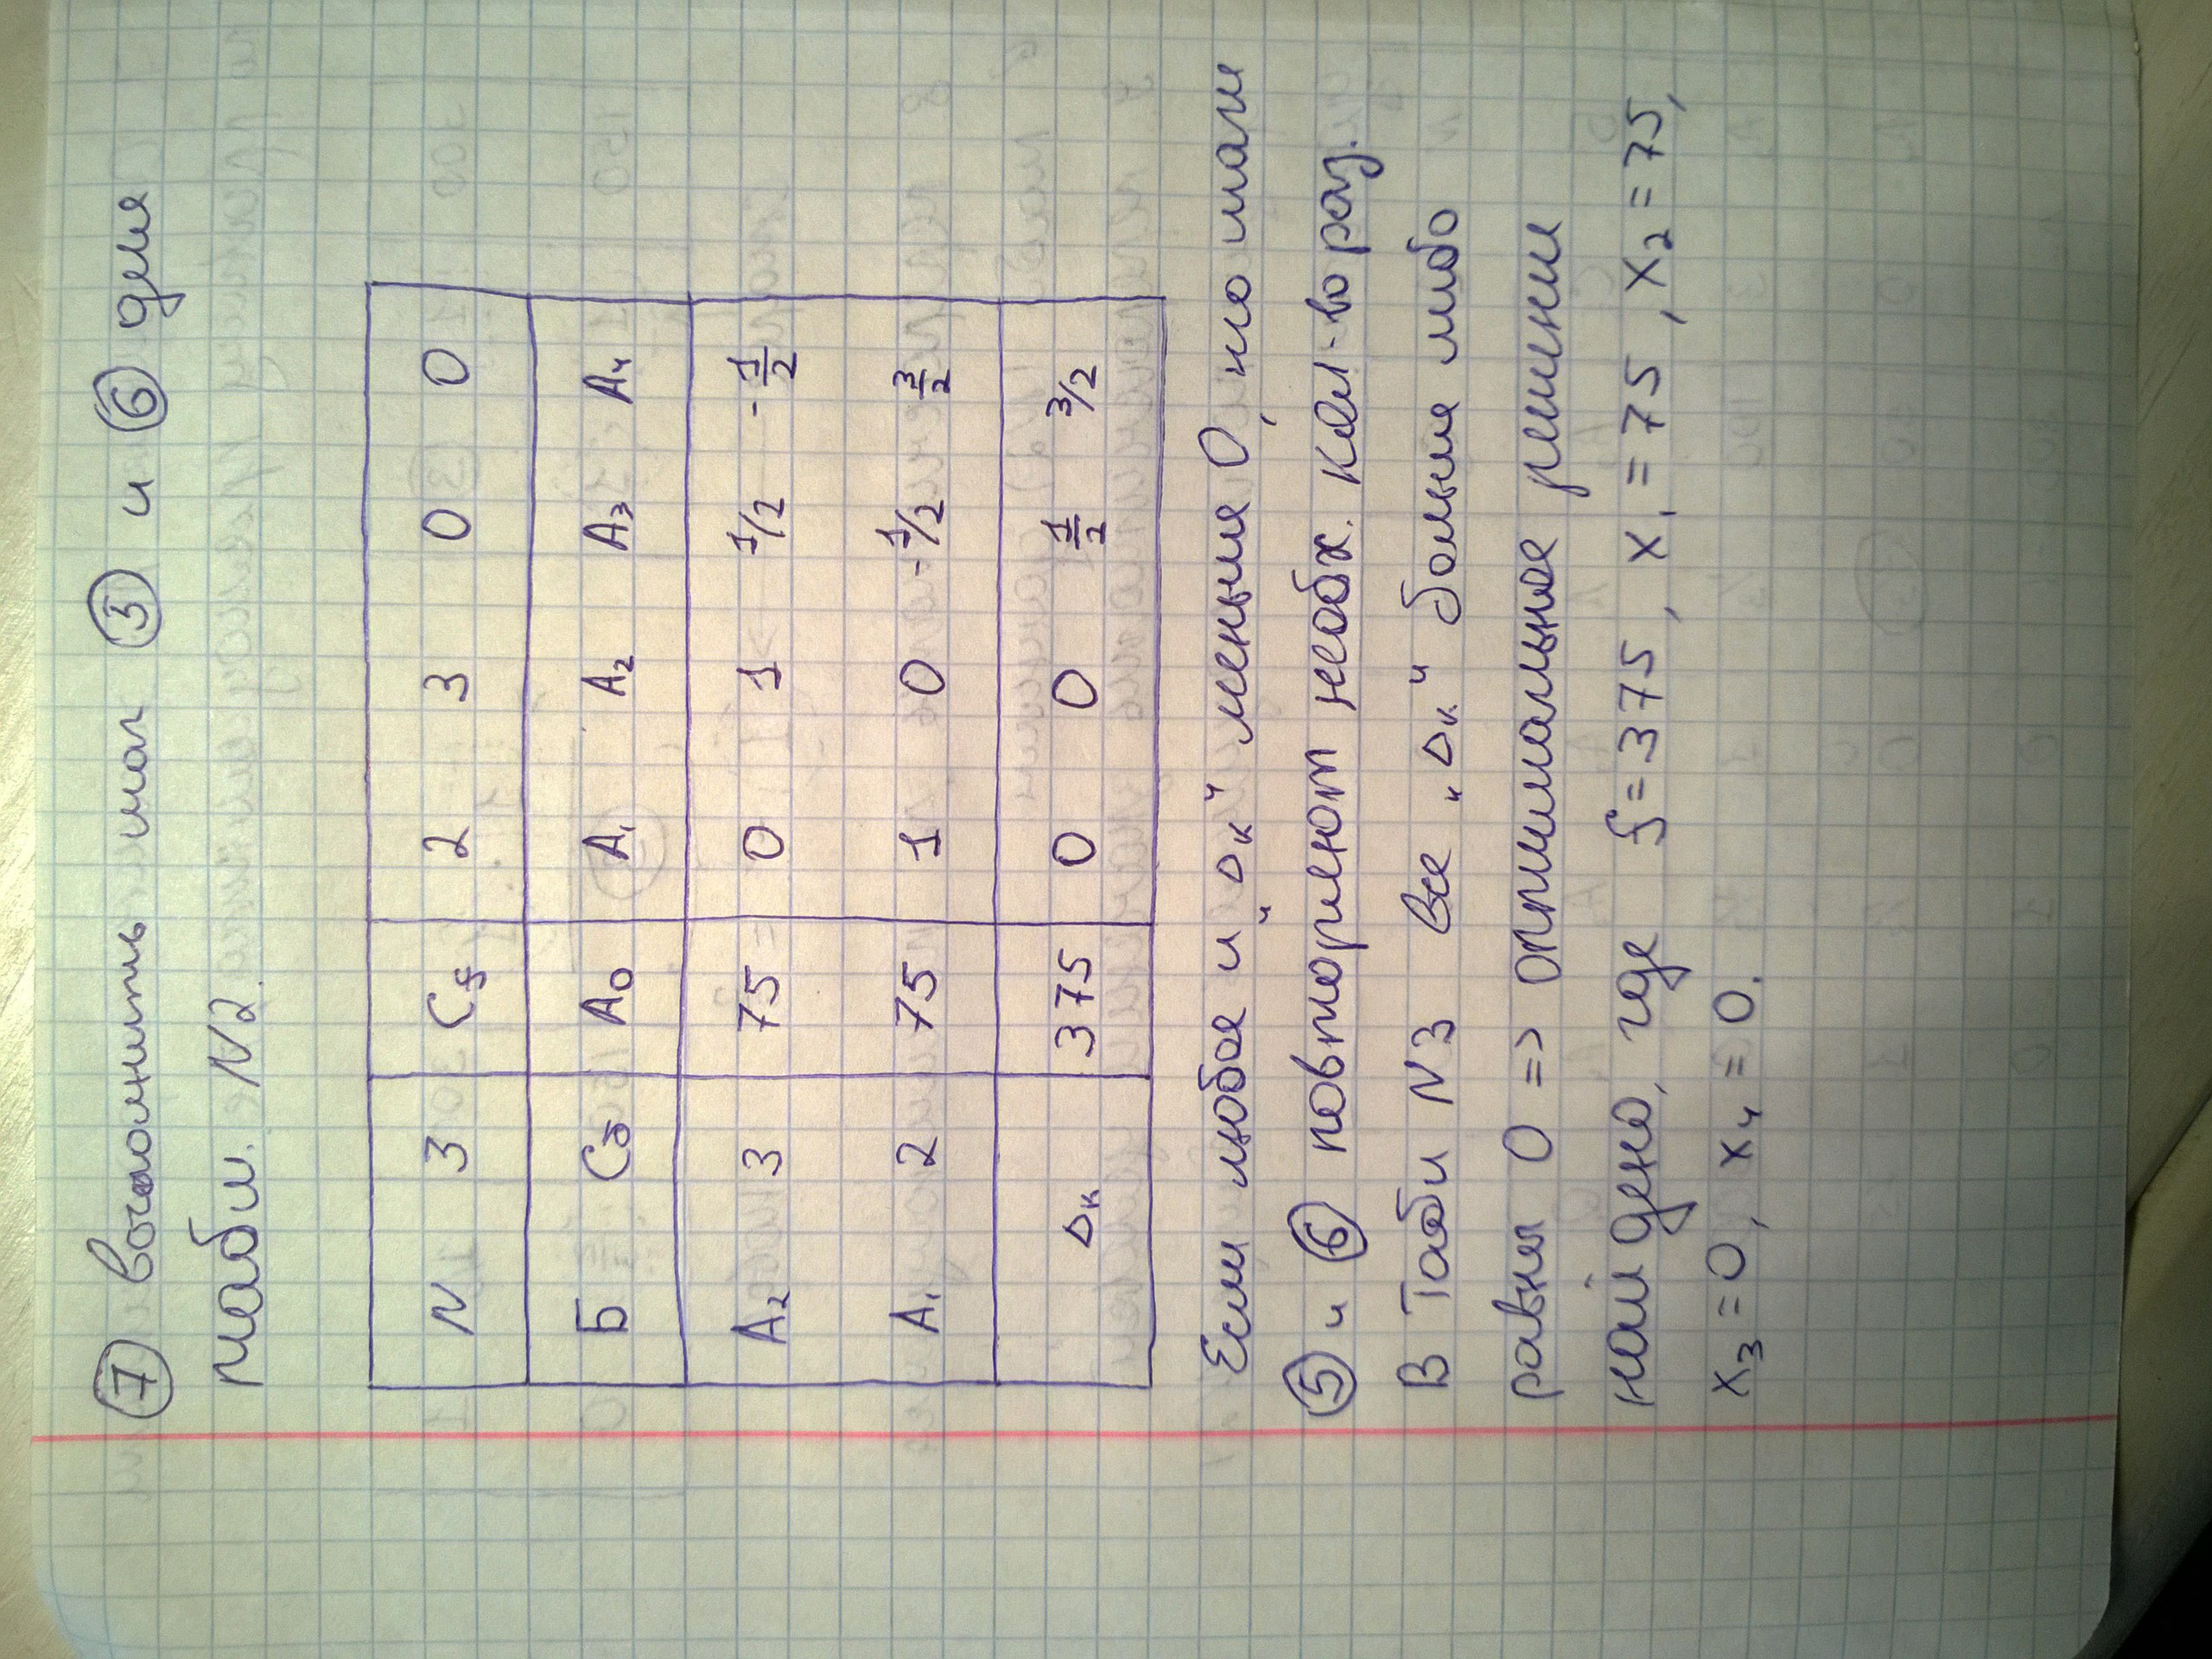 ⑦ выполнить шаг ⑤ и ⑥ для
табл. N2.
N 3 Cб 2 3 0 0
Б Cб A0 A₁ A₂ A₃ A₄
A₂ 3 75 0 1 1/2 -1/2
A₁ 2 75 1 0 -1/2 3/2
Δк 375 0 0 1/2 3/2
Если любая из "Δк" меньше 0, то шаги
⑤ и ⑥ повторяют необх. кол-во раз.
В Табл N3 Все "Δк" больше либо
равны 0 => оптимальное решение
найдено, где f=375, x₁=75, x₂=75,
x₃=0, x₄=0.